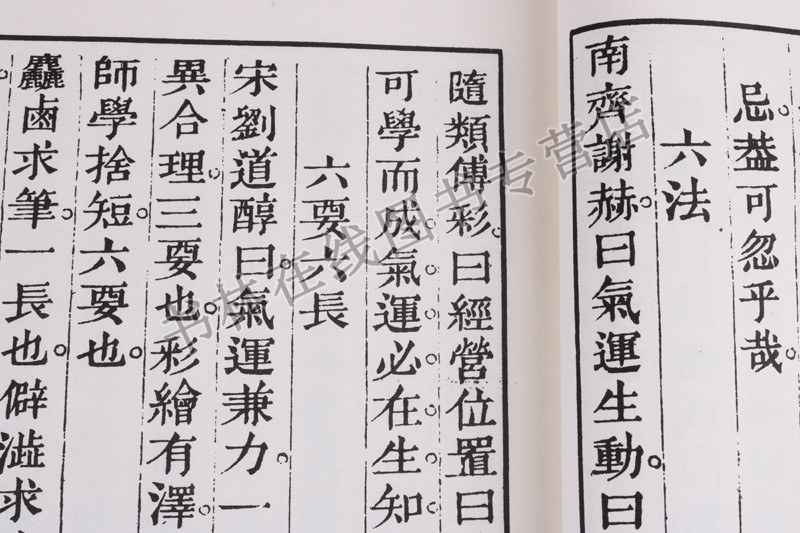 忌。葢可忽乎哉。
六法
南齊謝赫曰氣運生動。曰
隨類傅彩。曰經營位置曰
可學而成氣運必在生知
六要六長
宋劉道醇曰。氣運兼力。一
異合理。三要也。彩繪有澤
師學捨短。六要也。
麤鹵求筆。一長也。僻澁求
书林在线图书专营店